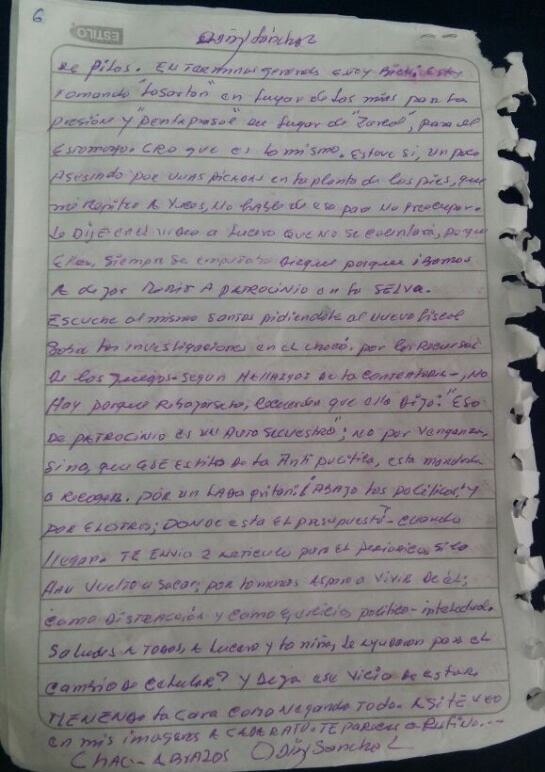 6
ESTILO
Odin Sánchez
de pilas. En terminos generales estoy bien. Estoy
tomando "Losartan" en lugar de los mios para la
presión y "pentaprasol" en lugar de "Zoreol", para el
Estomago. CRO que es lo mismo. Estuve si, un poco
Asesindo por unas picholn en la planta de los pies, que
me Repitio A Veces, No HABle de eso para No preocupar.
le Dije en el video a Lucero que No se cuentará, porque
ellos, siempre se empu porque ibamos
A dejar MORIR A PATROCINIO en la SELVA.
Escuche al mismo Santos pidiendole al nuevo Fiscal
sobre las investigaciones en el chocó. por los Recursos
de los juegos-segun HALLAZGOS de la Contraloria-, No
Hay porque Rebajarselo, Recuerden que ella Dijo: "ESO
DE PATROCINIO es un Auto Secuestro"; No por Venganza,
Sino, que ese estilo de la Anti politica, esta mandada
a Recoger. por un lado gritan: "ABAJO los politicos" y
por EL OTRO; DONDE esta EL presupuesto - cuando
llegan. TE ENVIO 2 Articulo para el periodico, si lo
Han vuelto a Sacar; por lo menos Aspiro a Vivir de él;
como DISTRACCIÓN y como Ejercicio politico-intelectual.
Saludes A TODOS, A Lucero y la niña, le ayudaron para el
Cambio de Celular? y Deja ese vicio de estar
MENENDO la Cara como Negando Todo. Asi TE VEO
en mis imagenes A CADA RATO. TE pareces a Rutino...
CHAO - ABRAZOS Odin Sánchez